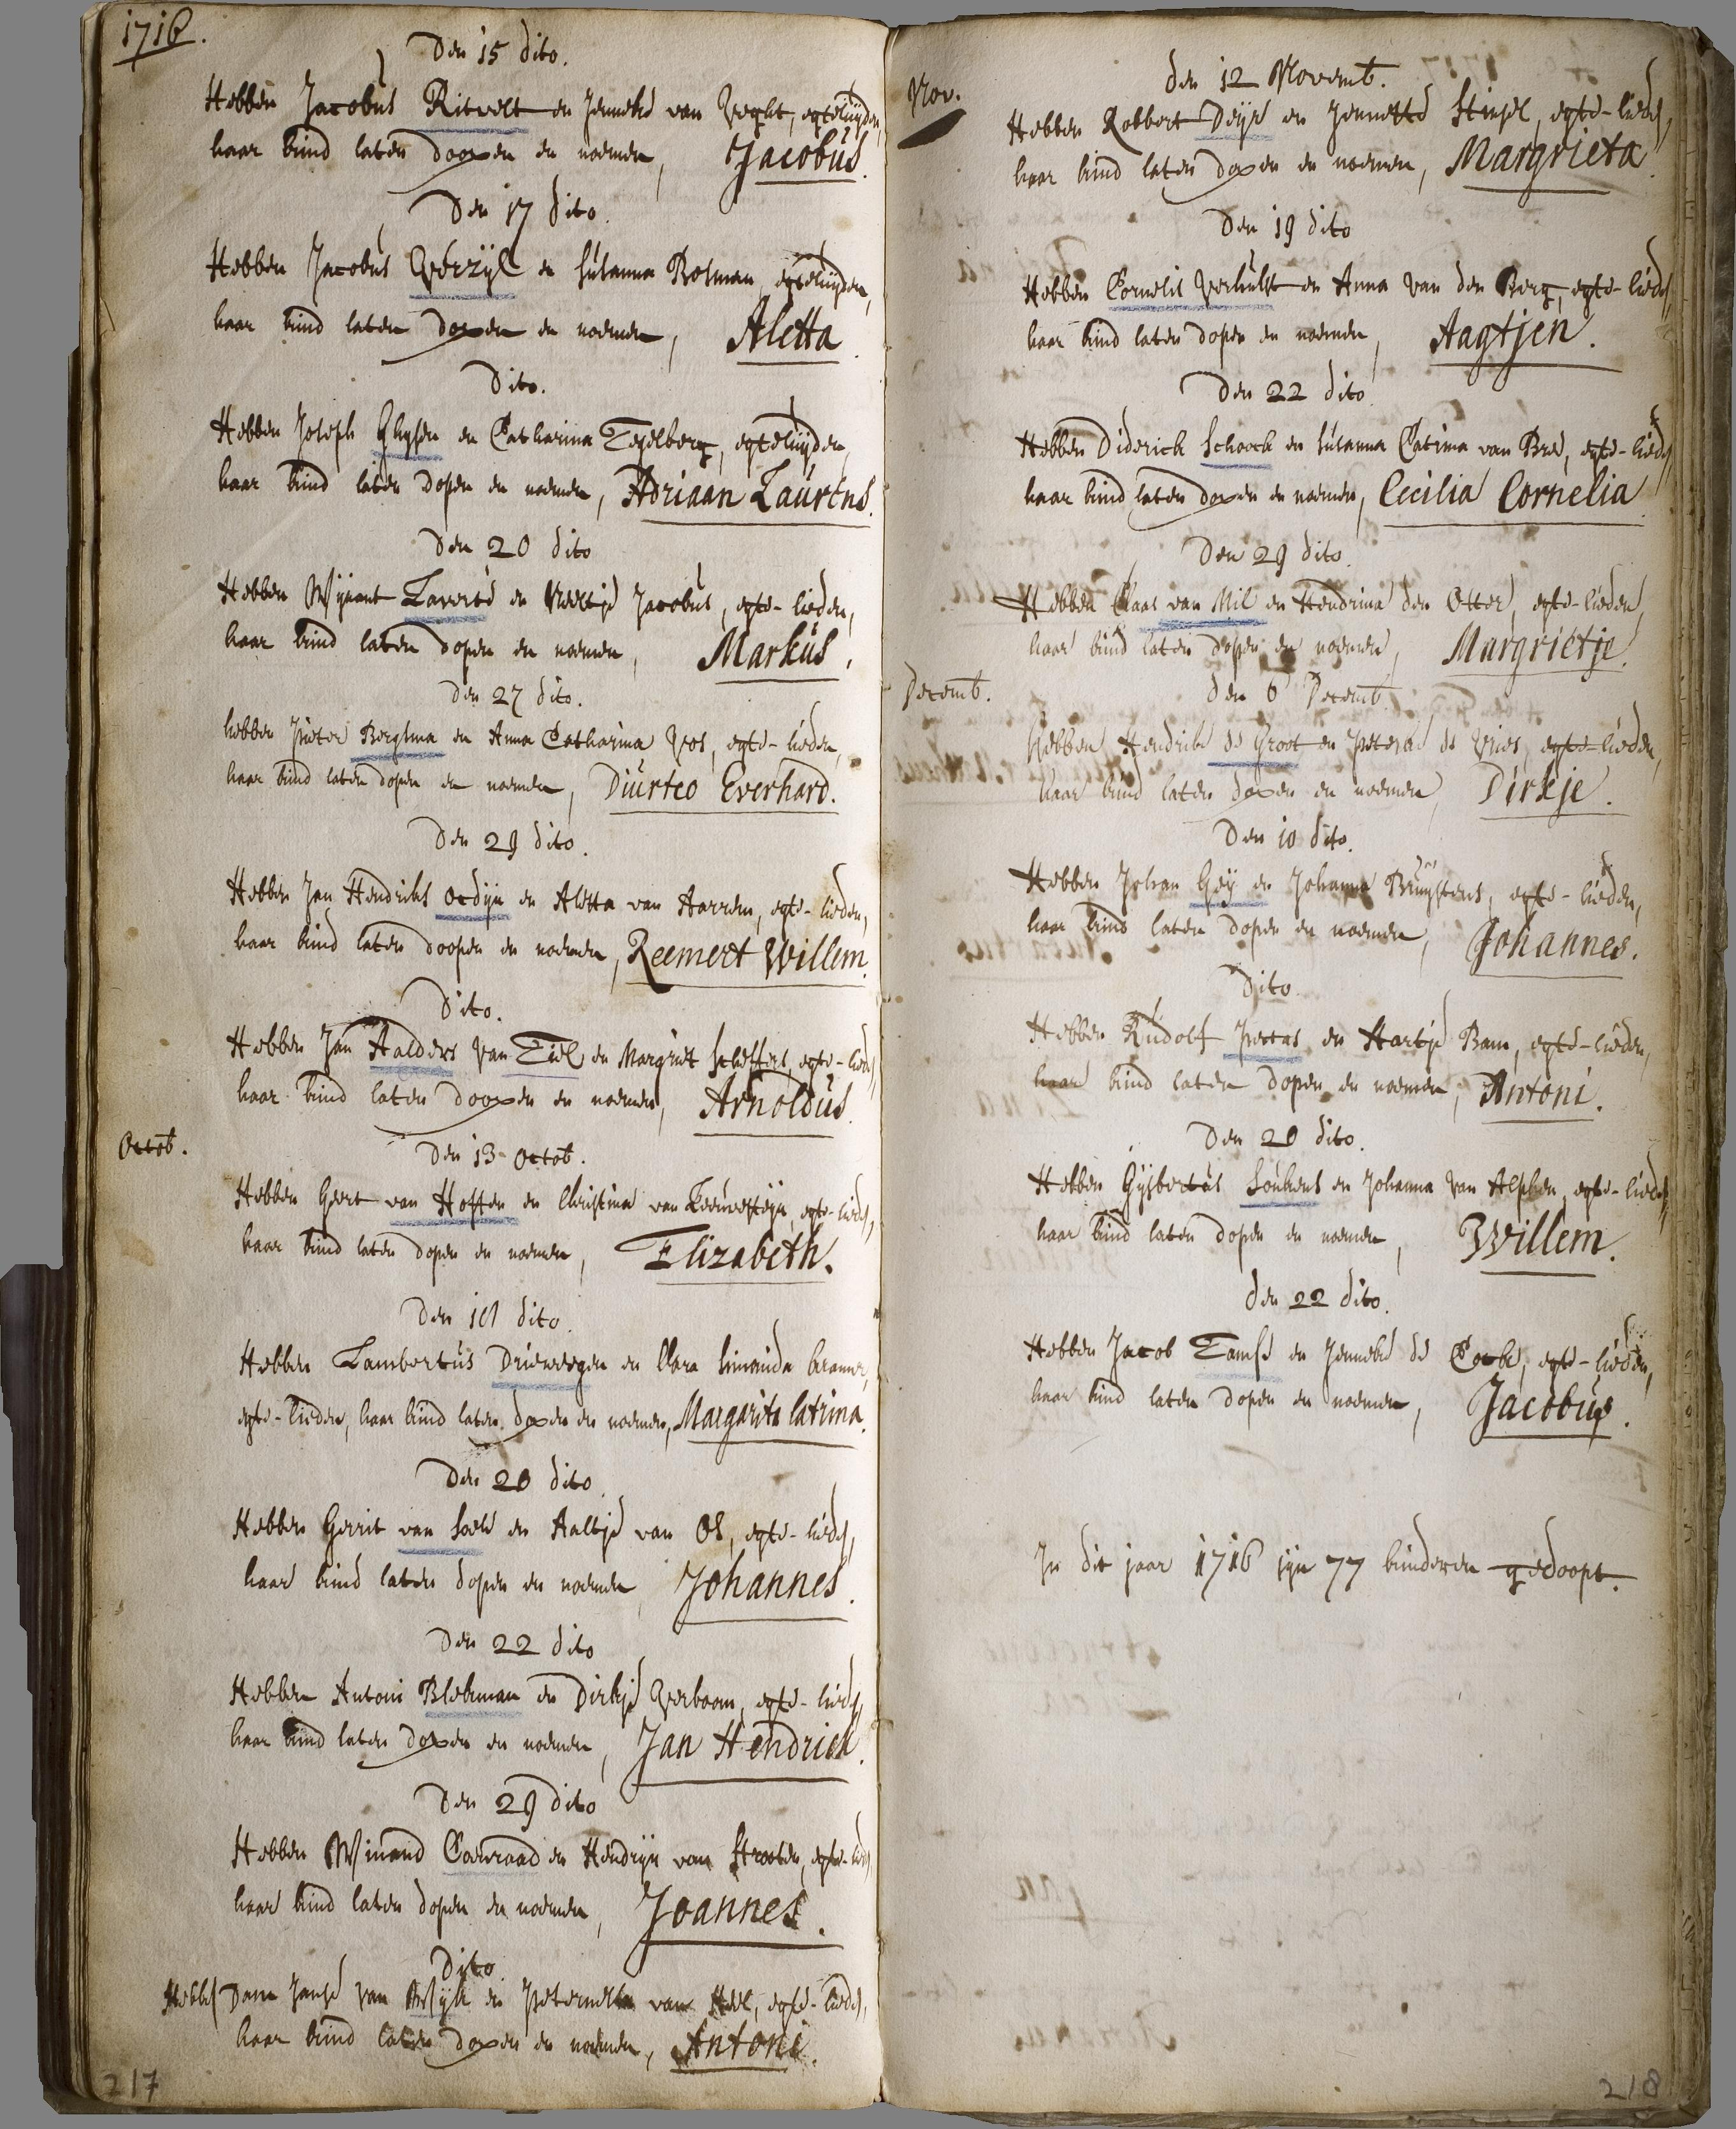 1716.
Den 15 dito.
Hebben Jacobus Ritvelt en Jenneke van Veght, egteluÿden,
haar kind laten doopen en noemen, Jacobus.
Den 17 dito.
Hebben Jacobus Verzÿl en Susanna Bosman, egteluÿden,
haar kind laten dopen en noemen, Aletta.
Dito.
Hebben Joseph Ghÿsen en Catharina Tegelberg, egteluÿden,
haar kind laten dopen en noemen, Adriaan Laurens.
Den 20 dito
Hebben Wÿnant Laverse en Neeltje Jacobus, egte-lieden,
haar kind laten dopen en noemen, Markus.
Den 27 dito.
hebben Pieter Bergsma en Anna Catharina Vos, egte-lieden,
haar kind laten dopen en noemen, Diurteo Everhard.
Den 29 dito.
Hebben Jan Hendriks Ordÿn en Aletta van Haaren, egte-lieden,
haar kind laten doopen en noemen, Reemert Willem.
Dito.
Hebben Jan Aalders van Tiel en Margriet Scheffers, egte-lieden,
haar kind laten doopen en noemen, Arnoldus.
Octob.
Den 13 Octob.
Hebben Geert van Hoffen en Christina van Leeuwesteÿn, egte-lieden,
haar kind laten dopen en noemen, Elizabeth.
Den dito.
Hebben Lambertus Drieweegen en Clara Simonida
egte-lieden, haar kind laten dopen en noemen, Margarita Catrina.
Den 20 dito.
Hebben Gerrit van Soele en Aaltje van Os, egte-lieden,
haar kind laten dopen en noemen, Johannes.
Den 22 dito
Hebben Antoni Blekman en Dirkje Verboom, egte-lieden,
haar kind laten dopen en noemen, Jan Hendrick.
Den 29 dito
Hebben Winand Coenraad en Hendrÿn van Strooten, egte-lieden,
haar kind laten dopen en noemen, Joannes.
Dito.
Hebben Dam Janse van Wÿk en Peternella van Heel, egte-lieden,
haar kind laten dopen en noemen, Antoni.
217
Nov.
den 12 Novemb.
Hebben Robbert Deÿs en Jennette Stinsel, egte-lieden,
haar kind laten dopen en noemen, Margrieta.
Den 19 dito
Hebben Cornelis Verhulst en Anna van den Berg, egte-lieden,
haar kind laten dopen en noemen, Aagtjen.
Den 22 dito
Hebben Diderick Schoock en Susanna Catrina van Bre, egte-lieden
haar kind laten dopen en noemen, Cecilia Cornelia.
Den 29 dito.
Hebben Claas van Mil en Hendrina den Otter, egte-lieden,
haar kind laten dopen en noemen, Margrietje.
Decemb.
den 6 Decemb.
Hebben Hendrik de Groot en Peterae de Vries, egte-lieden,
haar kind laten dopen en noemen, Dirkje.
Den 10 dito.
Hebben Johan Geÿ en Johanna Bruÿstens, egte-lieden,
haar kind laten dopen en noemen, Johannes.
Dito.
Hebben Rudolf Peetas en Hartje Bam, egte-lieden,
haar kind laten dopen en noemen, Antoni.
Den 20 dito.
Hebben Gÿsbertus Soukens en Johanna van Alphen, egte-lieden,
haar kind laten dopen en noemen, Willem.
den 22 dito.
Hebben Jacob Tamse en Jenneke de Cocke, egte-lieden,
haar kind laten dopen en noemen, Jacobus.
In dit jaar 1716 sÿn 77 kinderen gedoopt.
218